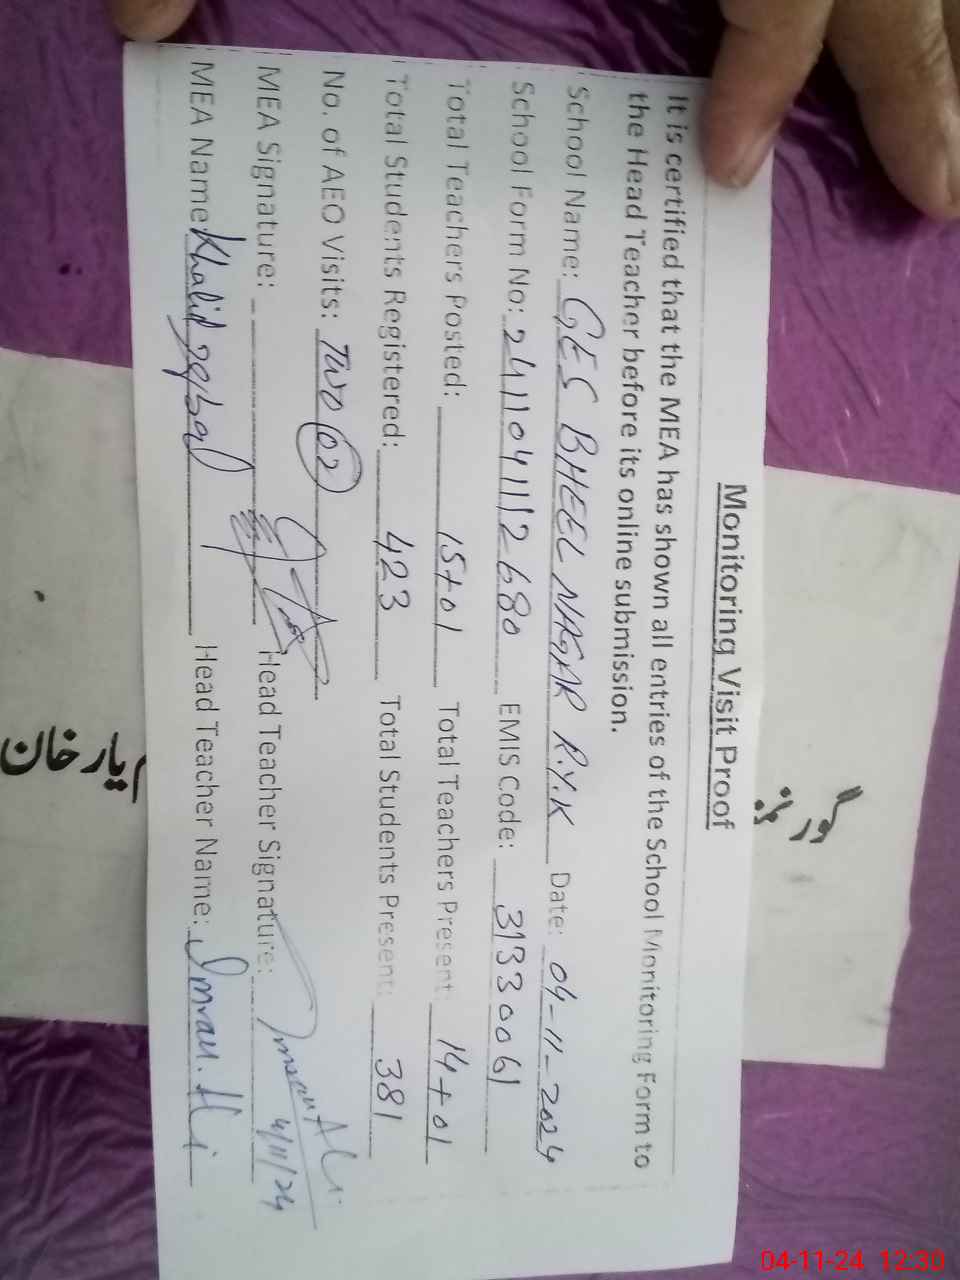 Monitoring Visit Proof
It is certified that the MEA has shown all entries of the School Monitoring Form to
the Head Teacher before its online submission.
School Name: GES BHEEL NAGAR R.Y.K Date: 04-11-2024
School Form No: 2411041112680 EMIS Code: 31330061
Total Teachers Posted: 15+01 Total Teachers Present: 14+01
Total Students Registered: 423 Total Students Present: 381
No. of AEO Visits: Two 02
MEA Signature: Head Teacher Signature: Imran Ali
4/11/24
MEA Name: Khalid Iqbal Head Teacher Name: Imran Ali
یار خان
04-11-24 12:30